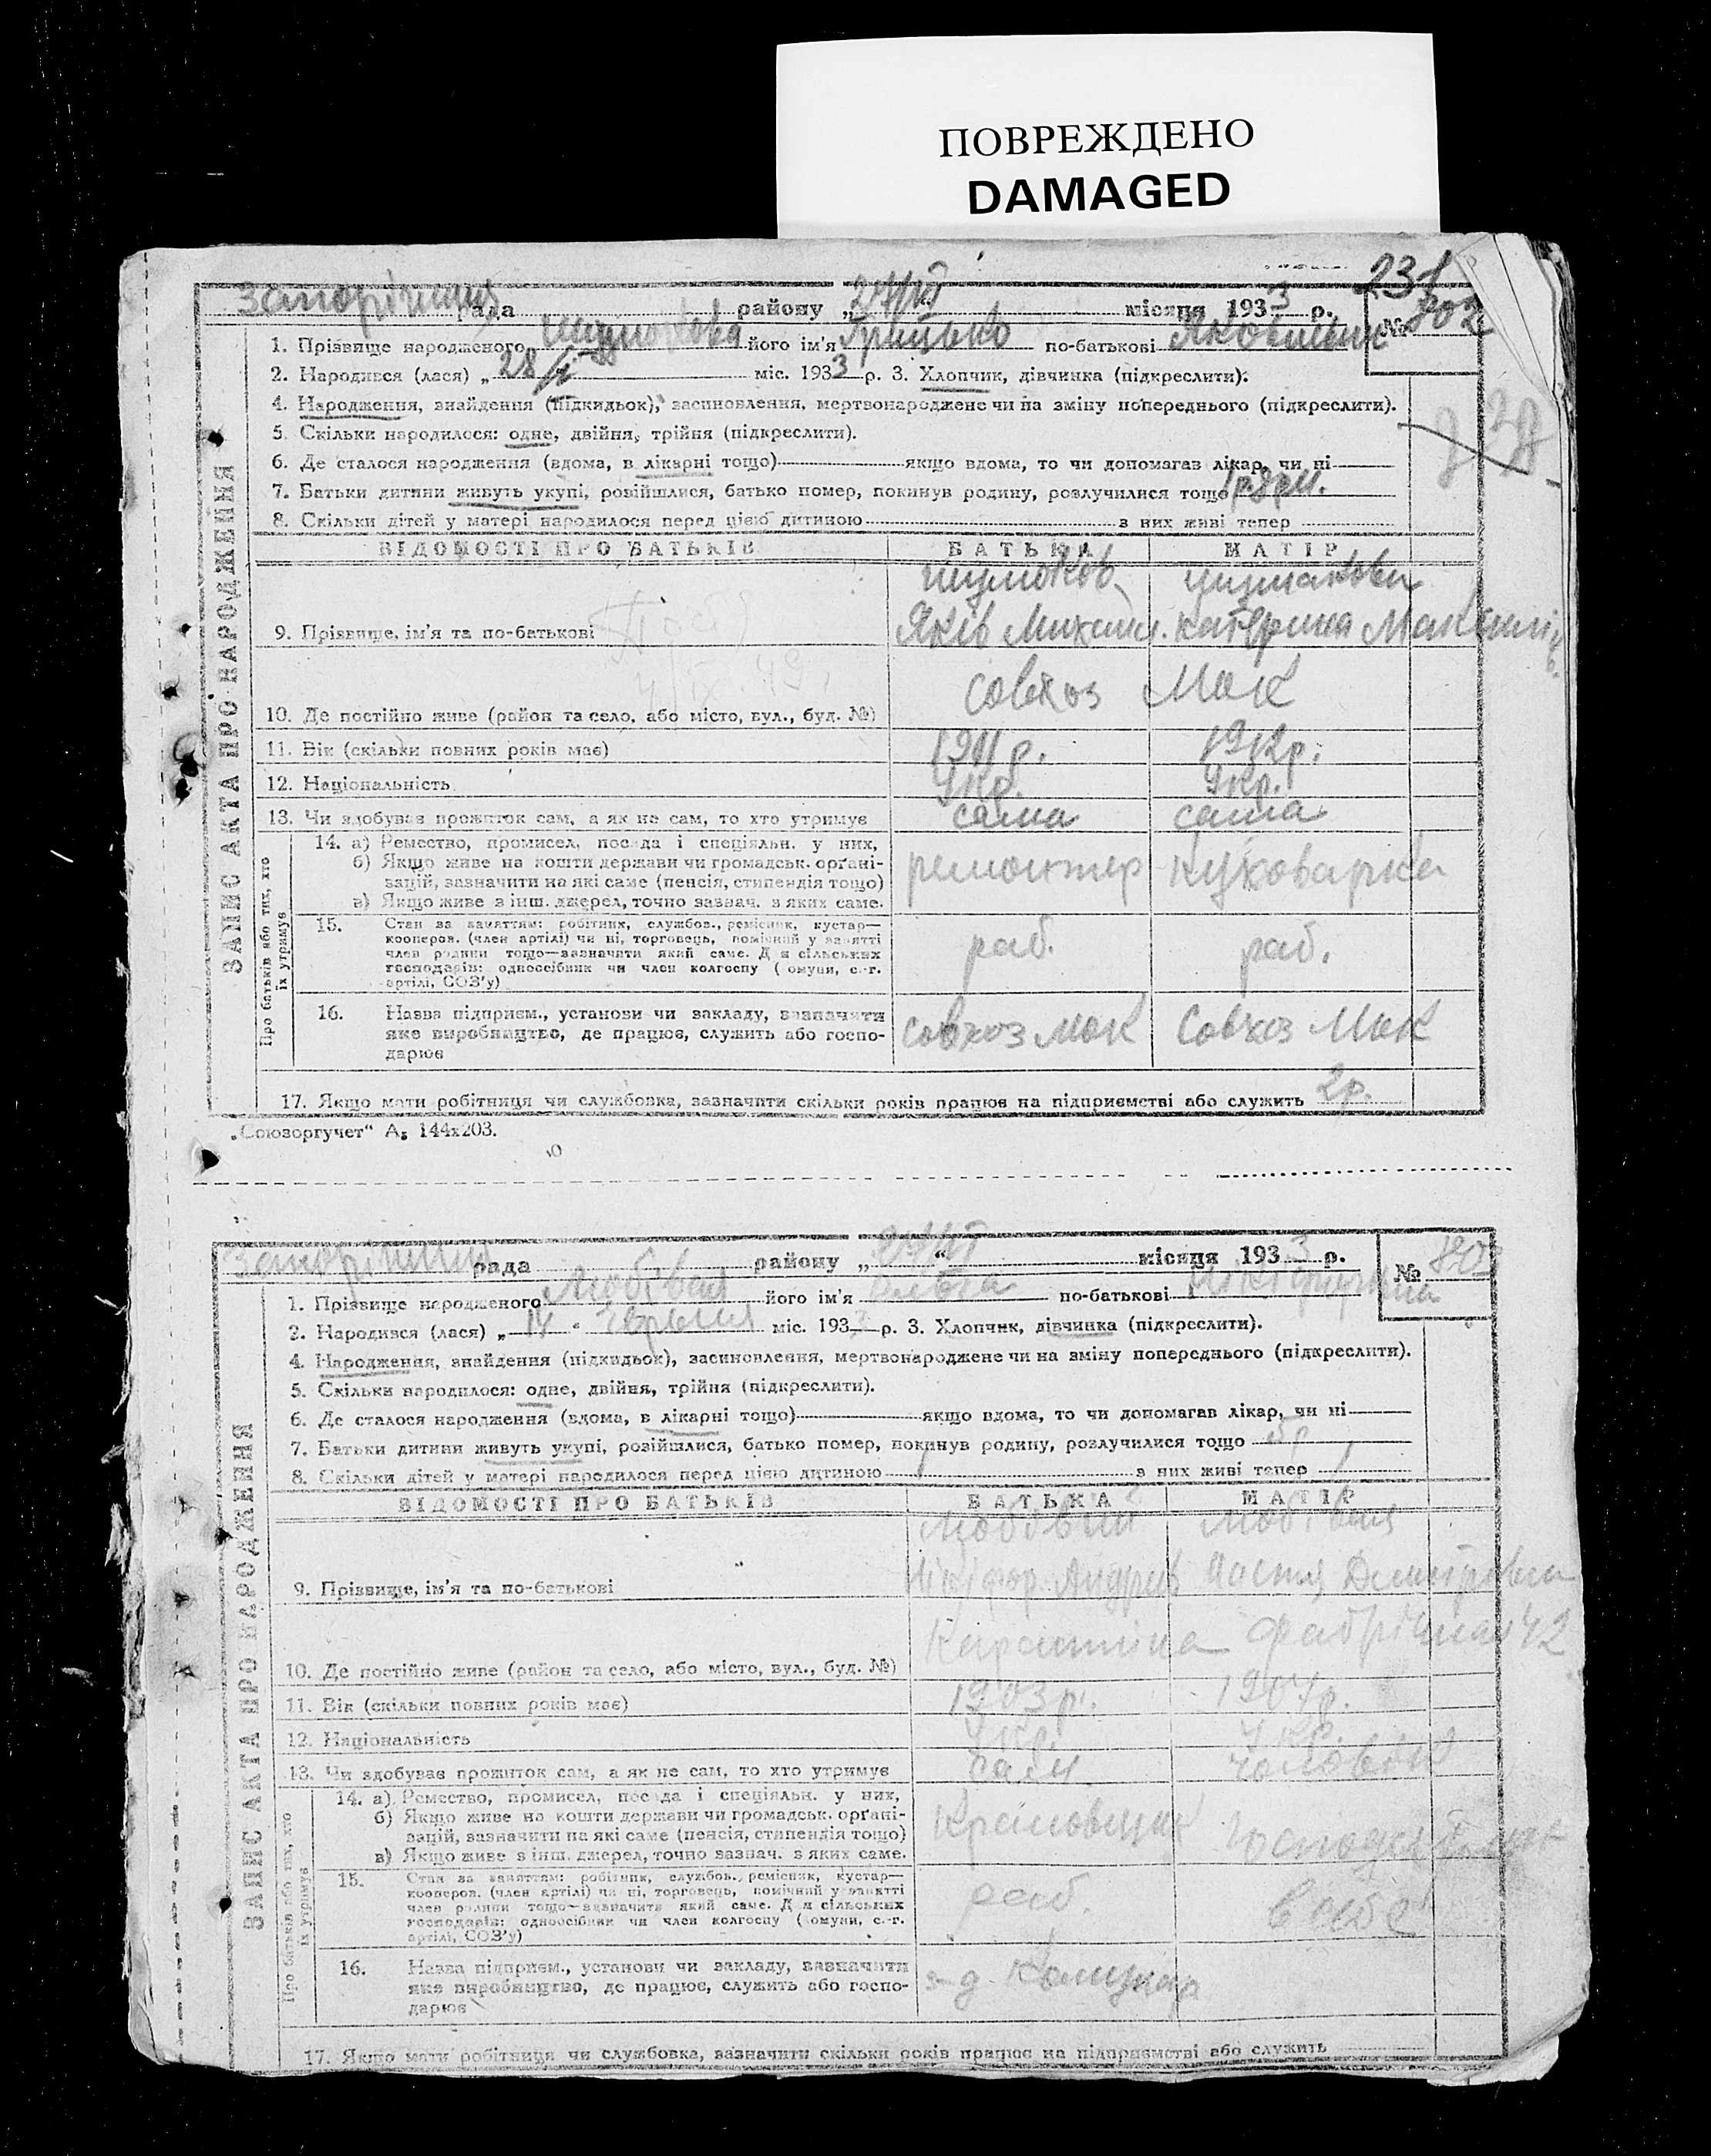 ПОВРЕЖДЕНО
DAMAGED
231
рада району „ місяця 1933 р. № 702
1. Прізвище народженого його ім'я Грицько по-батькові Яковлевич
2. Народився (лася) „28 міс. 1933 р. 3. Хлопчик, дівчинка (підкреслити).
4. Народження, знайдення (підкидьок), засиновлення, мертвонароджене чи на зміну попереднього (підкреслити).
5. Скільки народилося: одне, двійня, трійня (підкреслити).
6. Де сталося народження (вдома, в лікарні тощо) якщо вдома, то чи допомагав лікар, чи ні
7. Батьки дитини живуть укупі, розійшлися, батько помер, покинув родину, розлучилися тощо
8. Скільки дітей у матері народилося перед цією дитиною з них живі тепер
ВІДОМОСТІ ПРО БАТЬКІВ БАТЬКА МАТІР
9. Прізвище, ім'я та по-батькові Яків Михайл. Катерина
10. Де постійно живе (район та село, або місто, вул., буд. №) совхоз Мак
11. Вік (скільки повних років має) 1911 р. 1912 р.
12. Національність Укр. Укр.
13. Чи здобуває прожиток сам, а як не сам, то хто утримує сама сама
14. а) Ремество, промисел, посада і спеціяльн. у них,
б) Якщо живе на кошти держави чи громадськ. орґані-
зацій, зазначити на які саме (пенсія, стипендія тощо)
в) Якщо живе з інш. джерел, точно зазнач. з яких саме.
ремонтер Куховарка
15. Стан за заняттям: робітник, службов., ремісник, кустар—
кооперов. (член артілі) чи ні, торговець, помічний у занятті
член родини тощо—зазначити який саме. Для сільських
господарів: одноосібник чи член колгоспу (комуни, с.-г.
артілі, СОЗ'у)
раб. раб.
16. Назва підприєм., установи чи закладу, зазначити
яке виробництво, де працює, служить або госпо-
дарює
совхоз мак Совхоз Мак
17. Якщо мати робітниця чи службовка, зазначити скільки років працює на підприємстві або служить 2р.
ЗАПИС АКТА ПРО НАРОДЖЕННЯ
Про батьків або тих, хто
їх утримує
„Союзоргучет“ А5 144х203.
рада району „ “ місяця 1933 р. №
1. Прізвище народженого Любівая його ім'я Ольга по-батькові
2. Народився (лася) „14 “ червня міс. 193 р. 3. Хлопчик, дівчинка (підкреслити).
4. Народження, знайдення (підкидьок), засиновлення, мертвонароджене чи на зміну попереднього (підкреслити).
5. Скільки народилося: одне, двійня, трійня (підкреслити).
6. Де сталося народження (вдома, в лікарні тощо) якщо вдома, то чи допомагав лікар, чи ні
7. Батьки дитини живуть укупі, розійшлися, батько помер, покинув родину, розлучилися тощо 5р
8. Скільки дітей у матері народилося перед цією дитиною з них живі тепер
ВІДОМОСТІ ПРО БАТЬКІВ БАТЬКА МАТІР
Любівий Любівая
9. Прізвище, ім'я та по-батькові Нікіфор Андрів
10. Де постійно живе (район та село, або місто, вул., буд. №) Карантіна Фабрічная 42
11. Вік (скільки повних років має) 1903 р. 1907 р.
12. Національність Укр. Укр.
13. Чи здобуває прожиток сам, а як не сам, то хто утримує сам. чоловік
14. а) Ремество, промисел, посада і спеціяльн. у них,
б) Якщо живе на кошти держави чи громадськ. орґані-
зацій, зазначити на які саме (пенсія, стипендія тощо)
в) Якщо живе з інш. джерел, точно зазнач. з яких саме.
Крановщик
15. Стан за заняттям: робітник, службов., ремісник, кустар—
кооперов. (член артілі) чи ні, торговець, помічний у занятті
член родини тощо—зазначити який саме. Для сільських
господарів: одноосібник чи член колгоспу (комуни, с.-г.
артілі, СОЗ'у)
раб.
16. Назва підприєм., установи чи закладу, зазначити
яке виробництво, де працює, служить або госпо-
дарює
з-д Комунар
17. Якщо мати робітниця чи службовка, зазначити скільки років працює на підприємстві або служить
ЗАПИС АКТА ПРО НАРОДЖЕННЯ
Про батьків або тих, хто
їх утримує